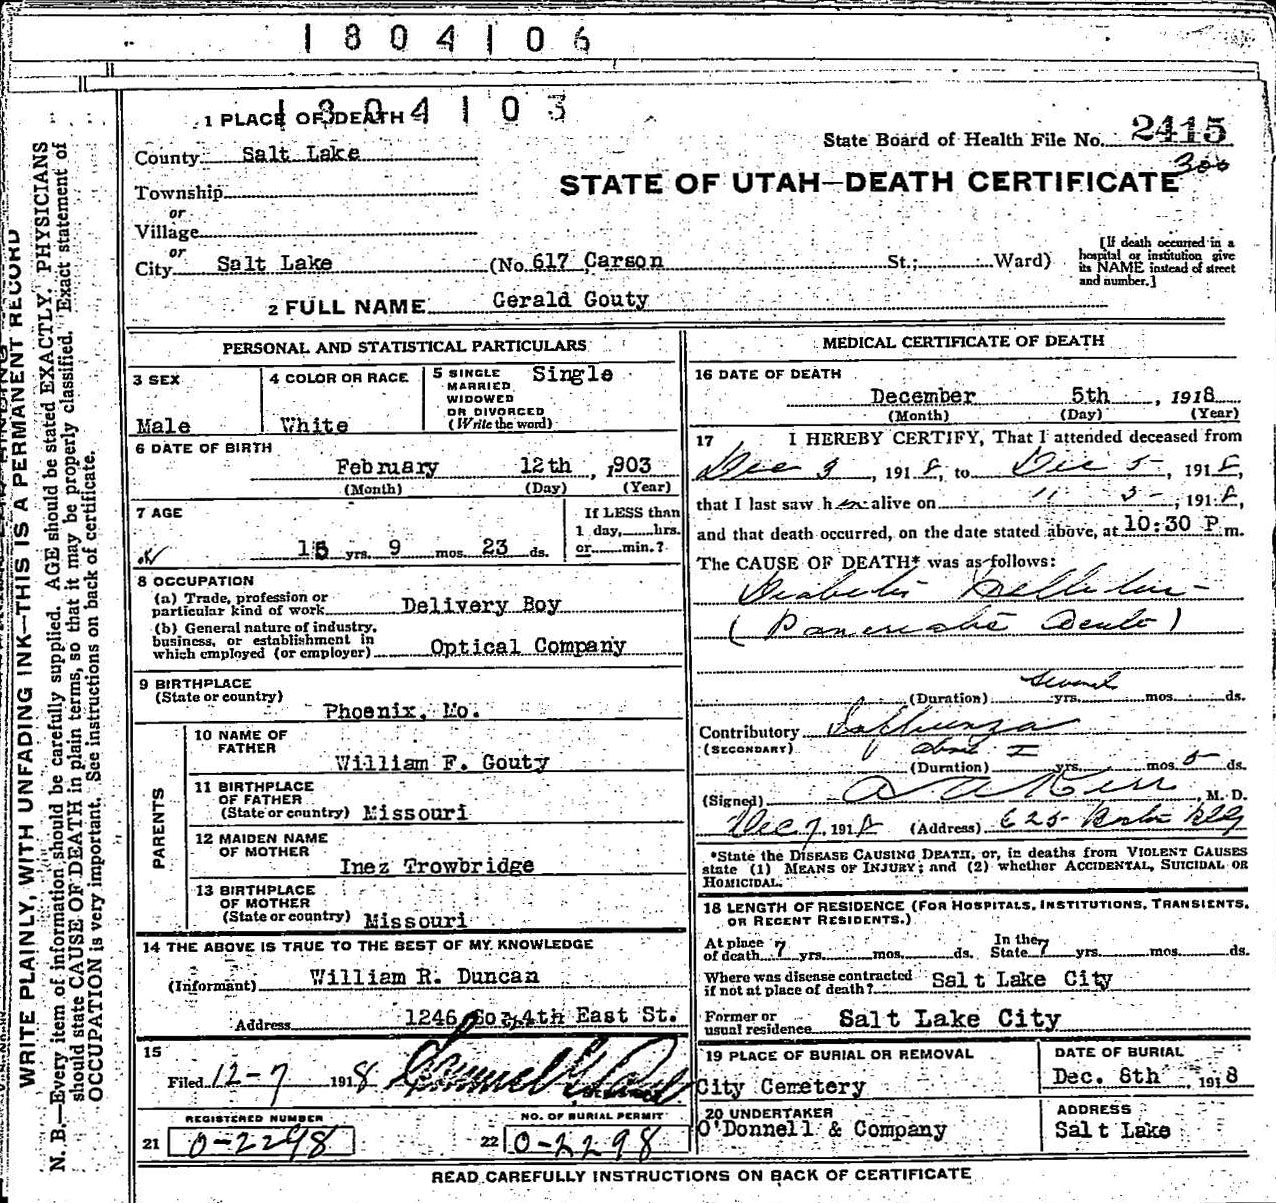 1804106
1804103
1 PLACE OF DEATH
State Board of Health File No. 2415
300
County Salt Lake
STATE OF UTAH—DEATH CERTIFICATE
Township
or
Village
or
City Salt Lake (No. 617 Carson St.; Ward)
[If death occurred in a
hospital or institution give
its NAME instead of street
and number.]
2 FULL NAME Gerald Gouty
PERSONAL AND STATISTICAL PARTICULARS
3 SEX
Male
4 COLOR OR RACE
White
5 SINGLE
MARRIED
WIDOWED
OR DIVORCED
(Write the word)
Single
6 DATE OF BIRTH
February 12th, 1903
(Month) (Day) (Year)
7 AGE
15 yrs. 9 mos. 23 ds.
If LESS than
1 day, hrs.
or min.?
8 OCCUPATION
(a) Trade, profession or
particular kind of work Delivery Boy
(b) General nature of industry,
business, or establishment in
which employed (or employer) Optical Company
9 BIRTHPLACE
(State or country)
Phoenix, Mo.
PARENTS
10 NAME OF
FATHER
William F. Gouty
11 BIRTHPLACE
OF FATHER
(State or country) Missouri
12 MAIDEN NAME
OF MOTHER
Inez Trowbridge
13 BIRTHPLACE
OF MOTHER
(State or country) Missouri
14 THE ABOVE IS TRUE TO THE BEST OF MY KNOWLEDGE
(Informant) William R. Duncan
Address 1246 So. 4th East St.
15
Filed 12-7 1918
REGISTERED NUMBER
21 0-2298
NO. OF BURIAL PERMIT
22 0-2298
MEDICAL CERTIFICATE OF DEATH
16 DATE OF DEATH
December 5th, 1918
(Month) (Day) (Year)
17 I HEREBY CERTIFY, That I attended deceased from
Dec 3, 1918, to Dec 5, 1918,
that I last saw him alive on 11 5, 1918,
and that death occurred, on the date stated above, at 10:30 P.m.
The CAUSE OF DEATH* was as follows:
Diabetis Mellitus
(Pancreatic Acute)
(Duration) several yrs. mos. ds.
Contributory Influenza
(SECONDARY)
(Duration) about yrs. mos. 5 ds.
(Signed) Kerr M. D.
Dec 7, 1918 (Address) 625 Boston Bldg
*State the DISEASE CAUSING DEATH, or, in deaths from VIOLENT CAUSES
state (1) MEANS OF INJURY; and (2) whether ACCIDENTAL, SUICIDAL OR
HOMICIDAL.
18 LENGTH OF RESIDENCE (FOR HOSPITALS, INSTITUTIONS, TRANSIENTS,
OR RECENT RESIDENTS.)
At place
of death 7 yrs. mos. ds.
In the
State 7 yrs. mos. ds.
Where was disease contracted
if not at place of death? Salt Lake City
Former or
usual residence Salt Lake City
19 PLACE OF BURIAL OR REMOVAL
City Cemetery
DATE OF BURIAL
Dec. 8th 1918
20 UNDERTAKER
O'Donnell & Company
ADDRESS
Salt Lake
READ CAREFULLY INSTRUCTIONS ON BACK OF CERTIFICATE
WRITE PLAINLY, WITH UNFADING INK—THIS IS A PERMANENT RECORD
N. B.—Every item of information should be carefully supplied. AGE should be stated EXACTLY. PHYSICIANS
should state CAUSE OF DEATH in plain terms, so that it may be properly classified. Exact statement of
OCCUPATION is very important. See instructions on back of certificate.